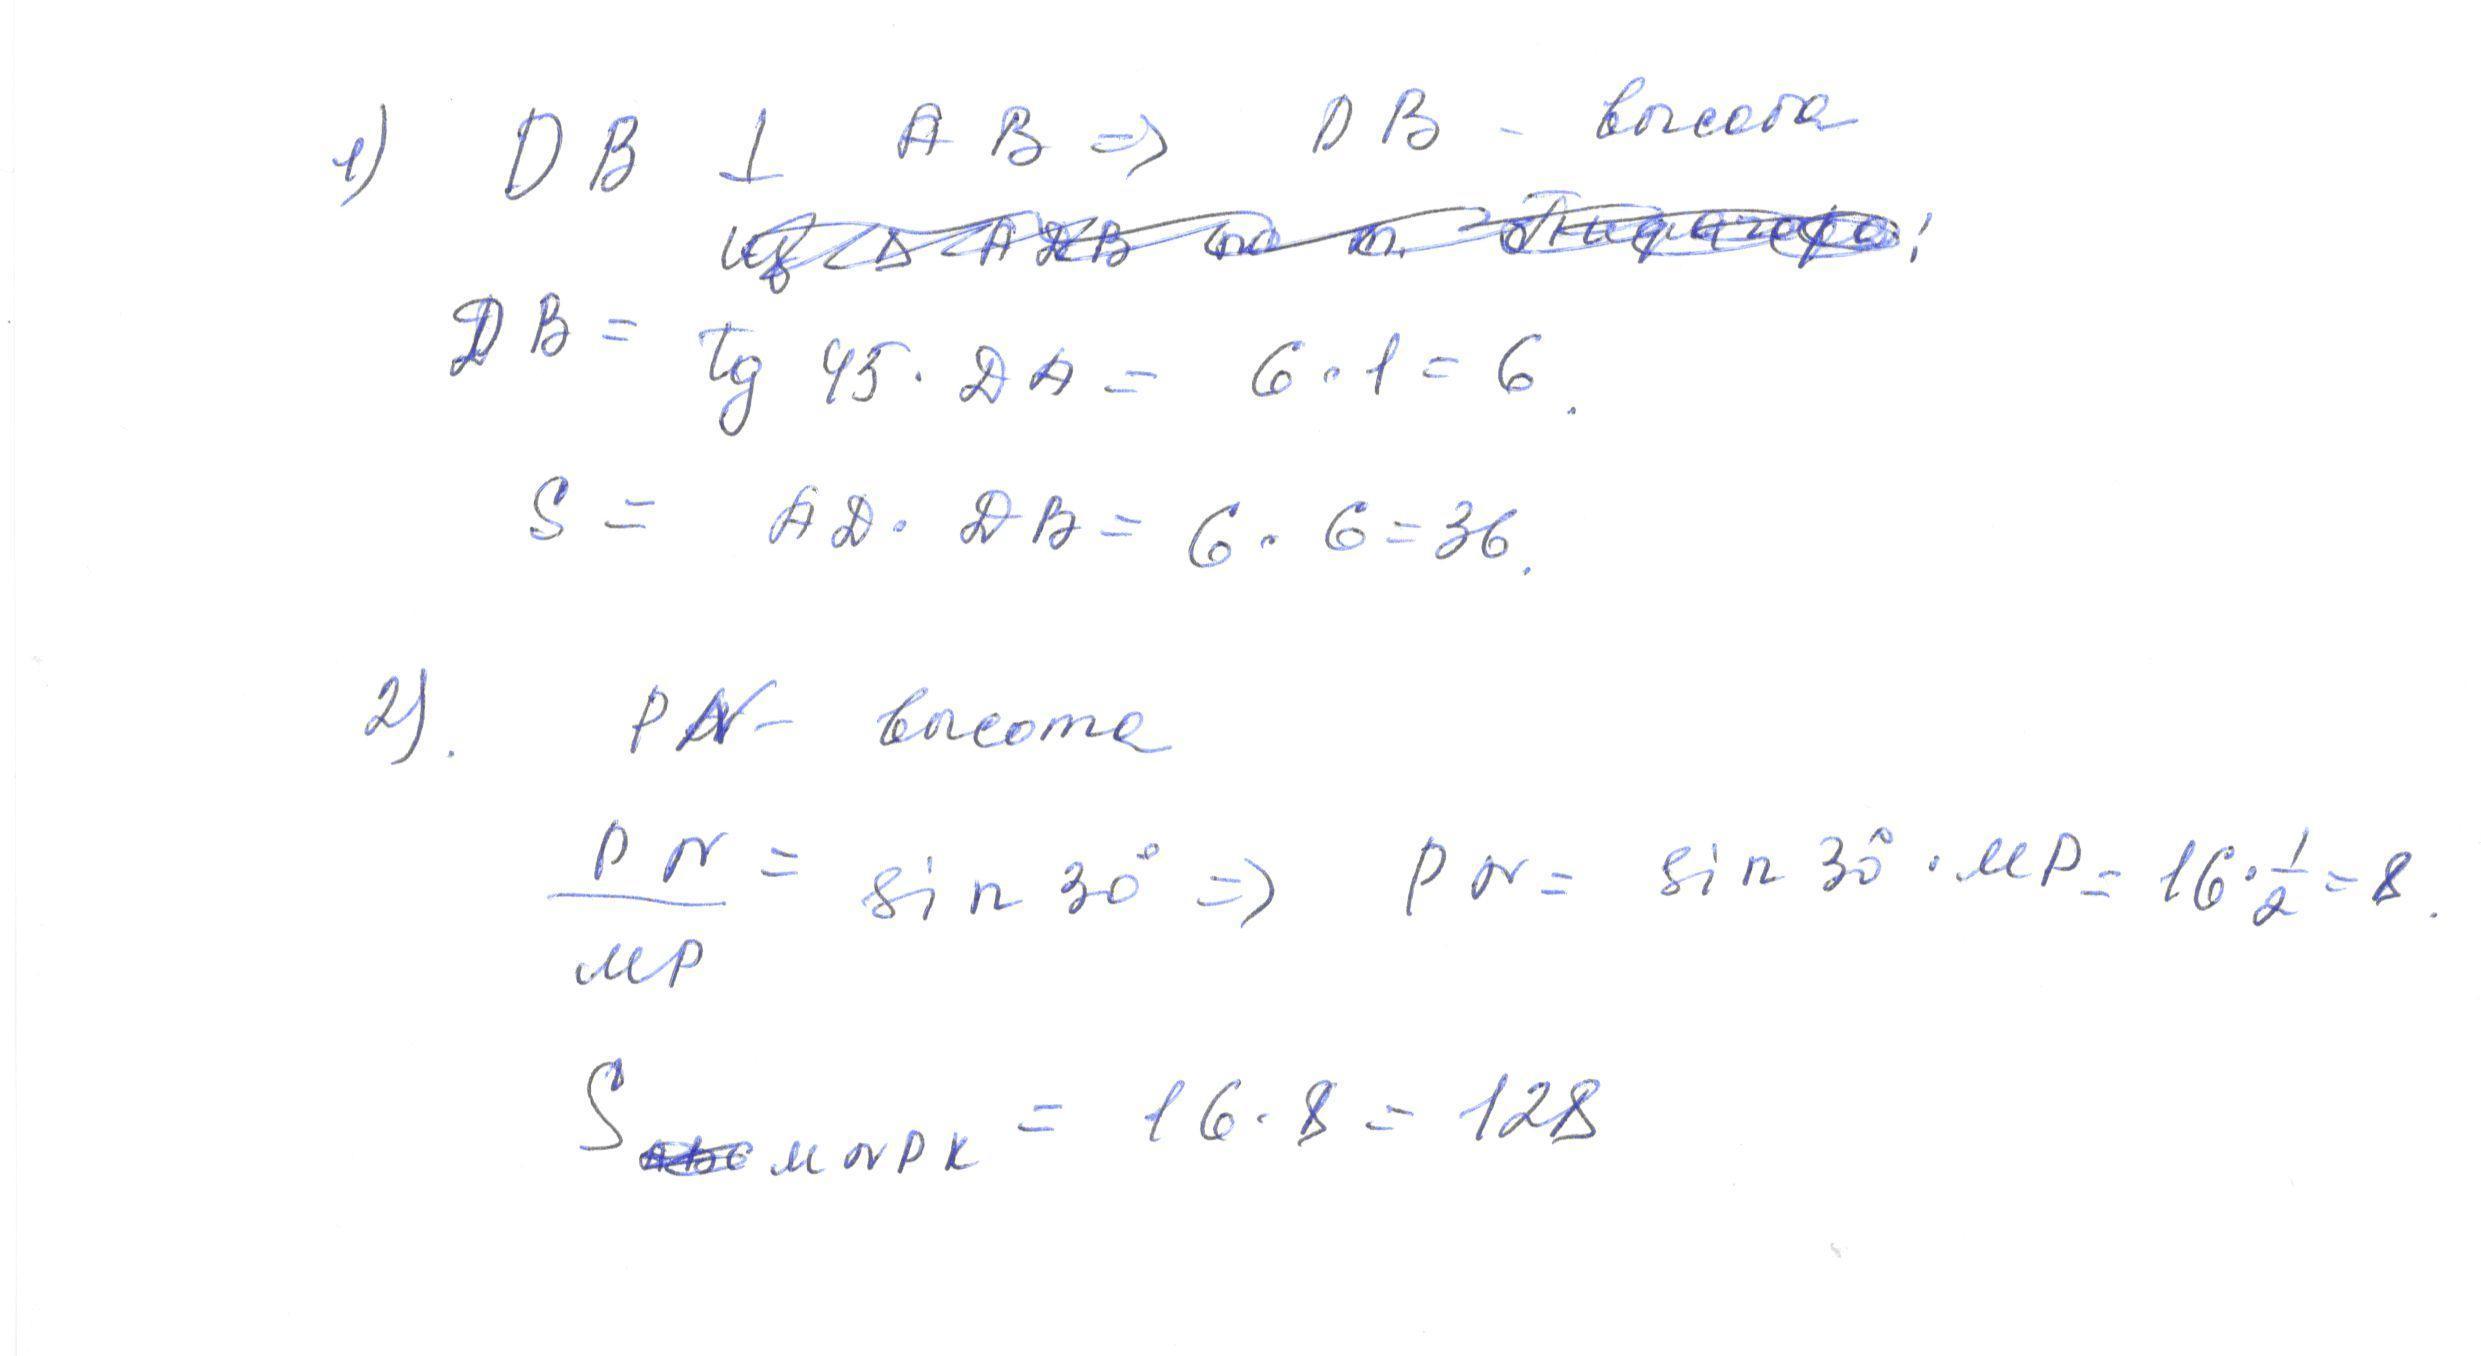 1) DB ⊥ AB => DB - высота
из Δ ADB по т. Пифагора;
DB = tg 45 · DA = 6 · 1 = 6.
S = AD · DB = 6 · 6 = 36.
2). PN - высота
PN/MP = sin 30° => PN = sin 30° · MP = 16 · 1/2 = 8.
S MNPK = 16 · 8 = 128